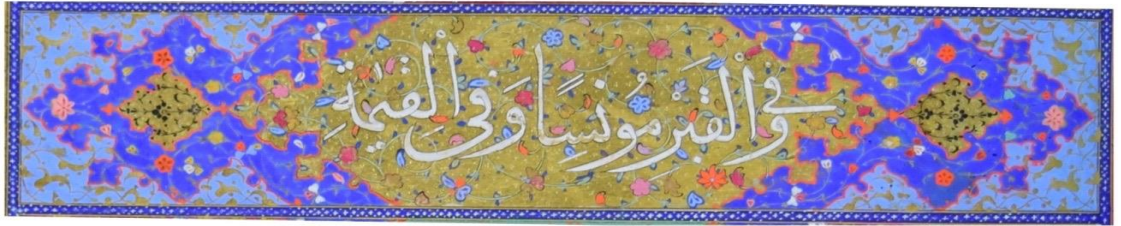 وفي القبر مونسا وفي القيمة